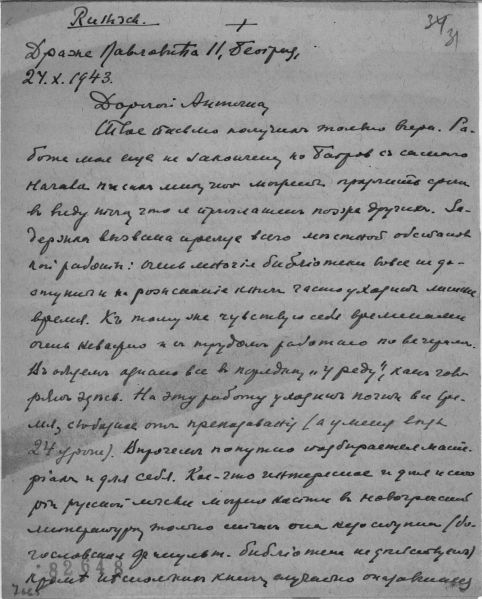 Russisch.
+
34
31
Драже Павловића 11, Београд,
27.X.1943.
Дорогой Антоша,
Твое письмо получил только вчера. Ра-
бота моя еще не закончена, но Бобров с самого
начала писал мне, что можно продлить срок
в виду того, что я приглашен позже других. За-
держка вызвана прежде всего местной обстанов-
кой работы: очень многие библиотеки вовсе не до-
ступны и на розыскание книг часто уходит лишнее
время. Къ тому же чувствую себя временами
очень неважно и с трудом работаю по вечерам.
Въ общем однако все в порядке, „у реду", как гово-
рят здесь. На эту работу уходит почти все вре-
мя, свободное отъ преподавания (а у меня ведь
24 урока). Впрочем попутно подбирается мате-
риал и для себя. Кое-что интересное и для исто-
рии русской мысли можно найти в новогреческой
литературе, только сейчас она недоступна (бо-
гословская факульт. библиотека не действует)
кроме нѣскольких книг, случайно оказавшихся
82648